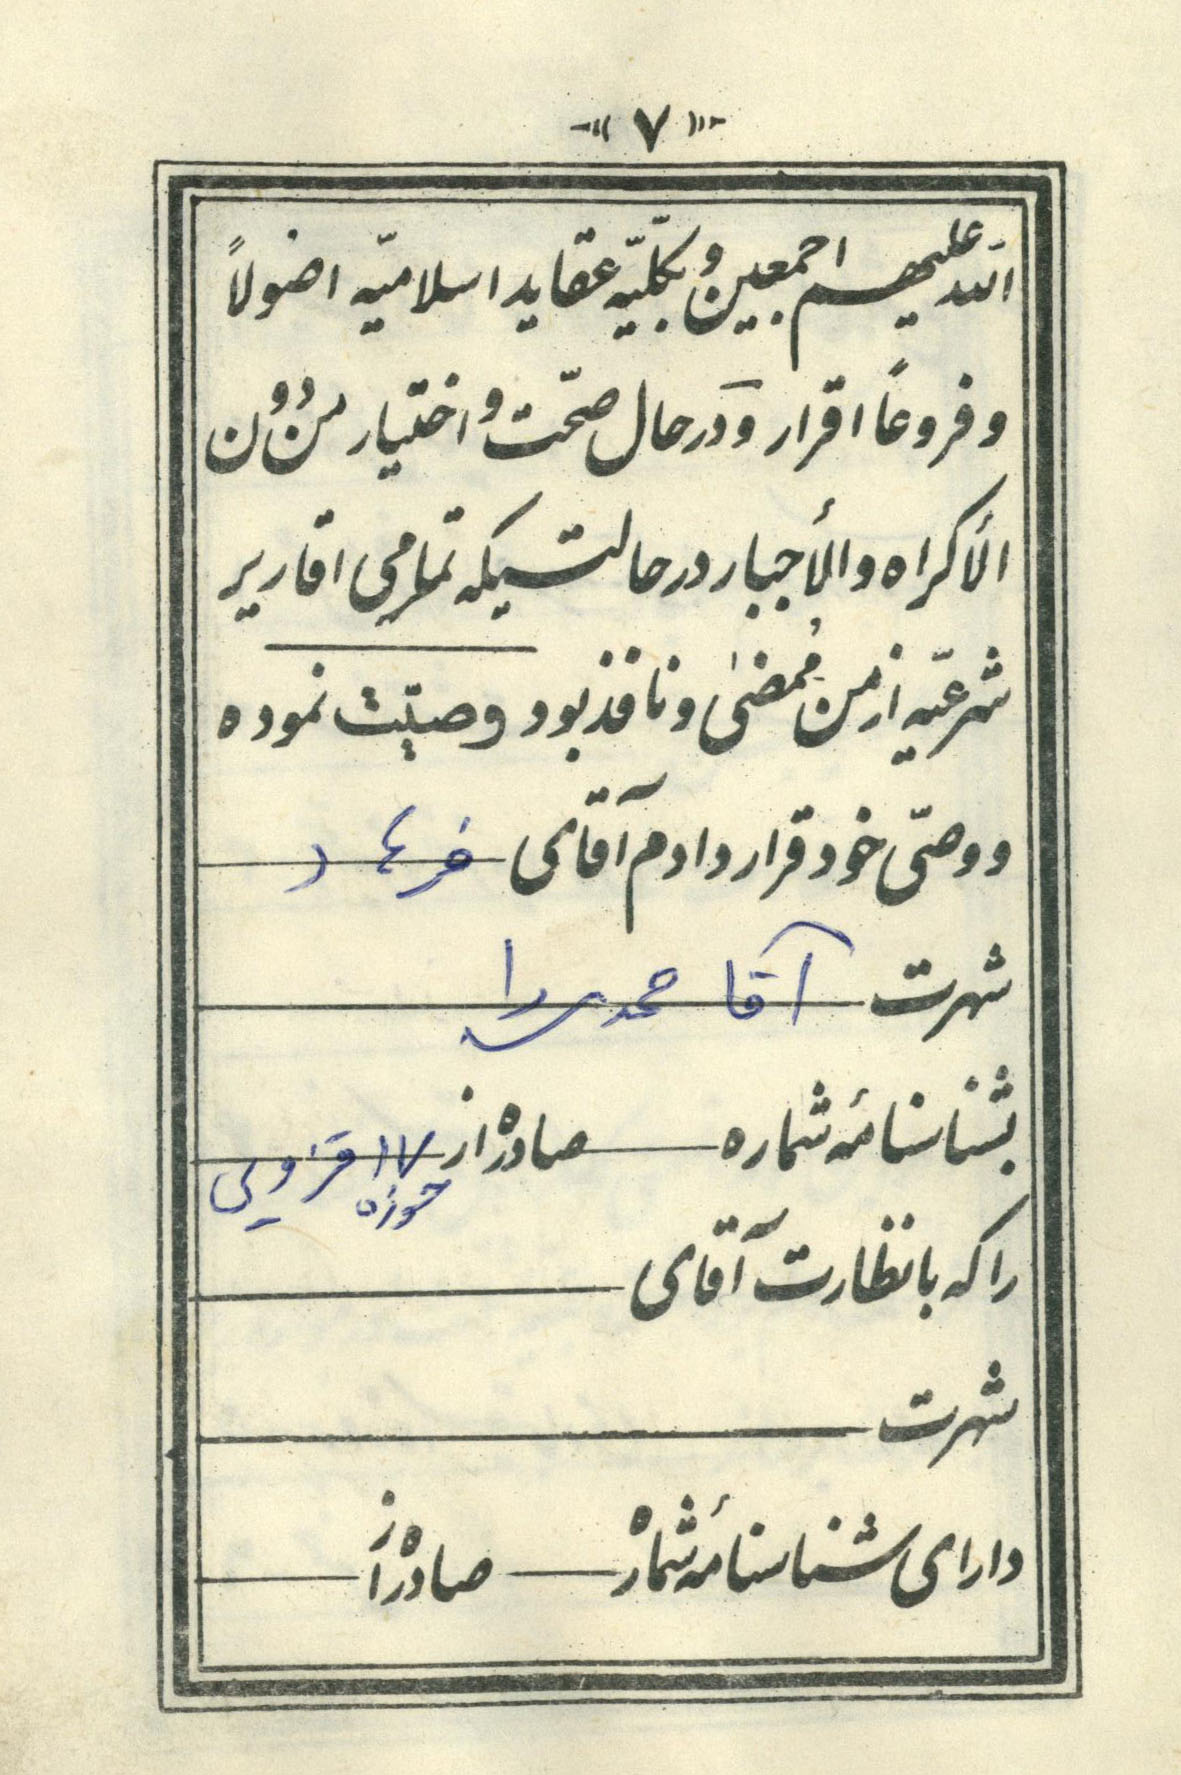 «۷»
الله علیهم اجمعین و بکلّیّه عقاید اسلامیّه اصولاً
و فروعاً اقرار و در حال صحّت و اختیار من دون
الأکراه والأجبار در حالتیکه تمامی اقاریر
شرعیّه از من مُمضیٰ و نافذ بود وصیّت نموده
و وصّی خود قرار دادم آقای فرهاد
شهرت آقا محمدی را
بشناسنامهٔ شماره صادره از ۱۷ قزوین
حوزه
را که با نظارت آقای
شهرت
دارای شناسنامهٔ شماره صادره از